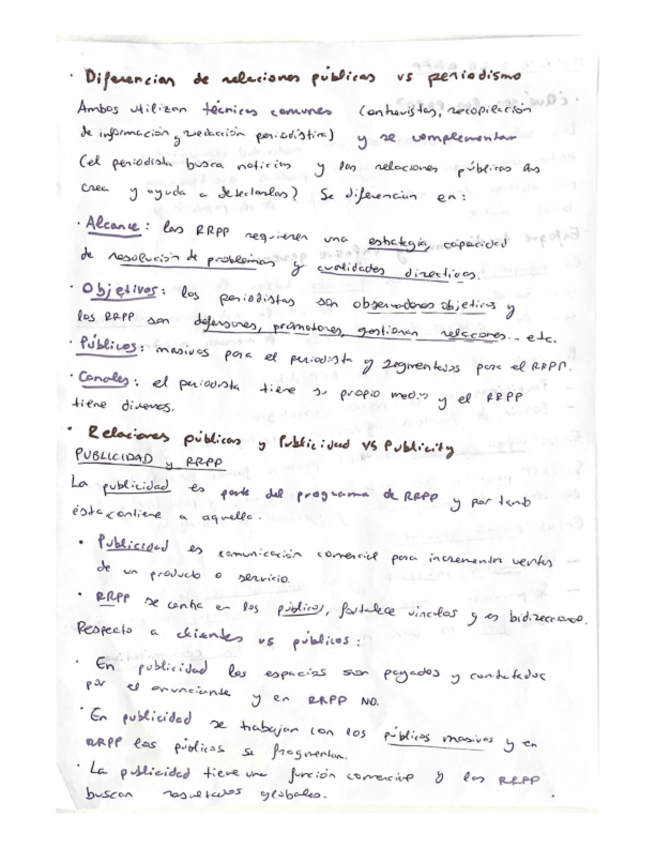 · Diferencias de relaciones públicas vs periodismo
Ambos utilizan técnicas comunes (entrevistas, recopilación
de información y redacción periodística) y se complementan
(el periodista busca noticias y las relaciones públicas las
crea y ayuda a detectarlas) Se diferencian en:
· Alcance: las RRPP requieren una estrategia, capacidad
de resolución de problemas y cualidades directivas.
· Objetivos: los periodistas son observadores objetivos y
los RRPP son defensores, promotores, gestionan relaciones... etc.
· Públicos: masivos para el periodista y segmentados para el RRPP.
· Canales: el periodista tiene su propio medio y el RRPP
tiene diversos.
· Relaciones públicas y Publicidad VS Publicity
PUBLICIDAD y RRPP
La publicidad es parte del programa de RRPP y por tanto
ésta contiene a aquella.
· Publicidad es comunicación comercial para incrementar ventas
de un producto o servicio.
· RRPP se centra en los públicos, fortalece vínculos y es bidireccional.
Respecto a clientes vs públicos:
· En publicidad los espacios son pagados y contratados
por el anunciante y en RRPP NO.
· En publicidad se trabajan con los públicos masivos y en
RRPP los públicos se fragmentan.
· La publicidad tiene una función comercial y las RRPP
buscan resultados globales.